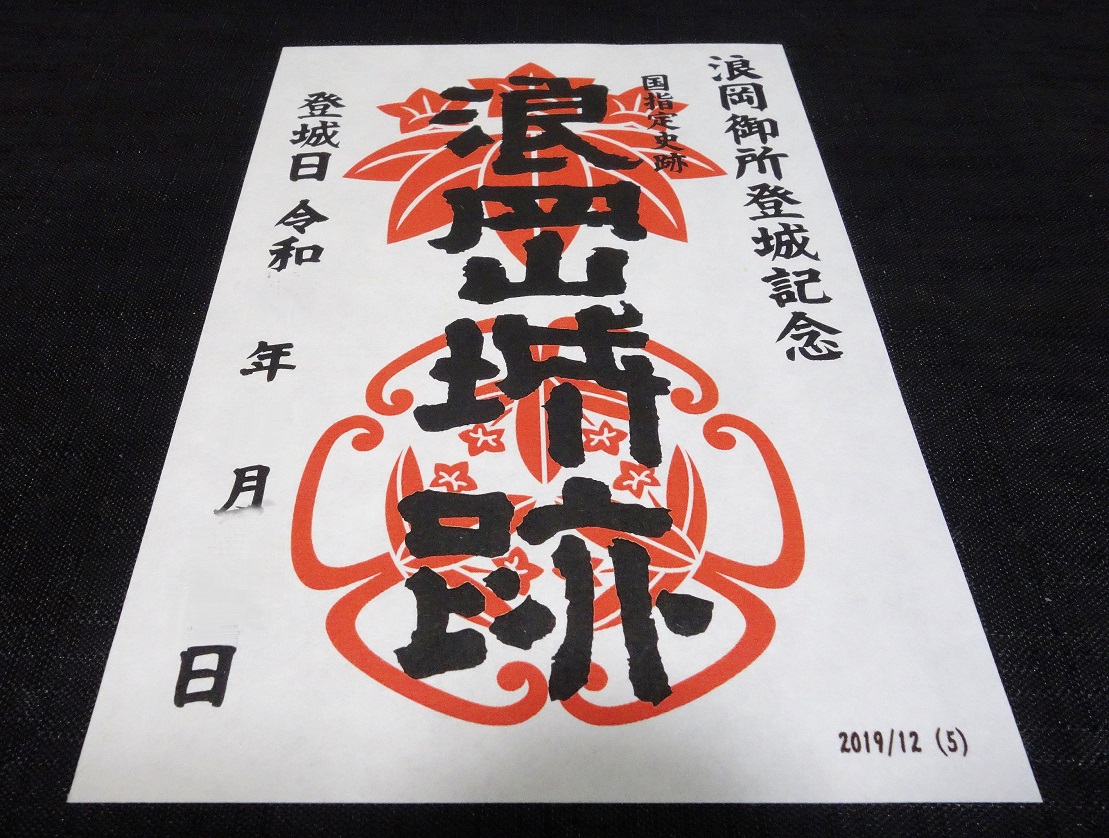 浪岡御所登城記念
国指定史跡
浪岡城跡
登城日 令和 年 月 日
2019/12 (5)